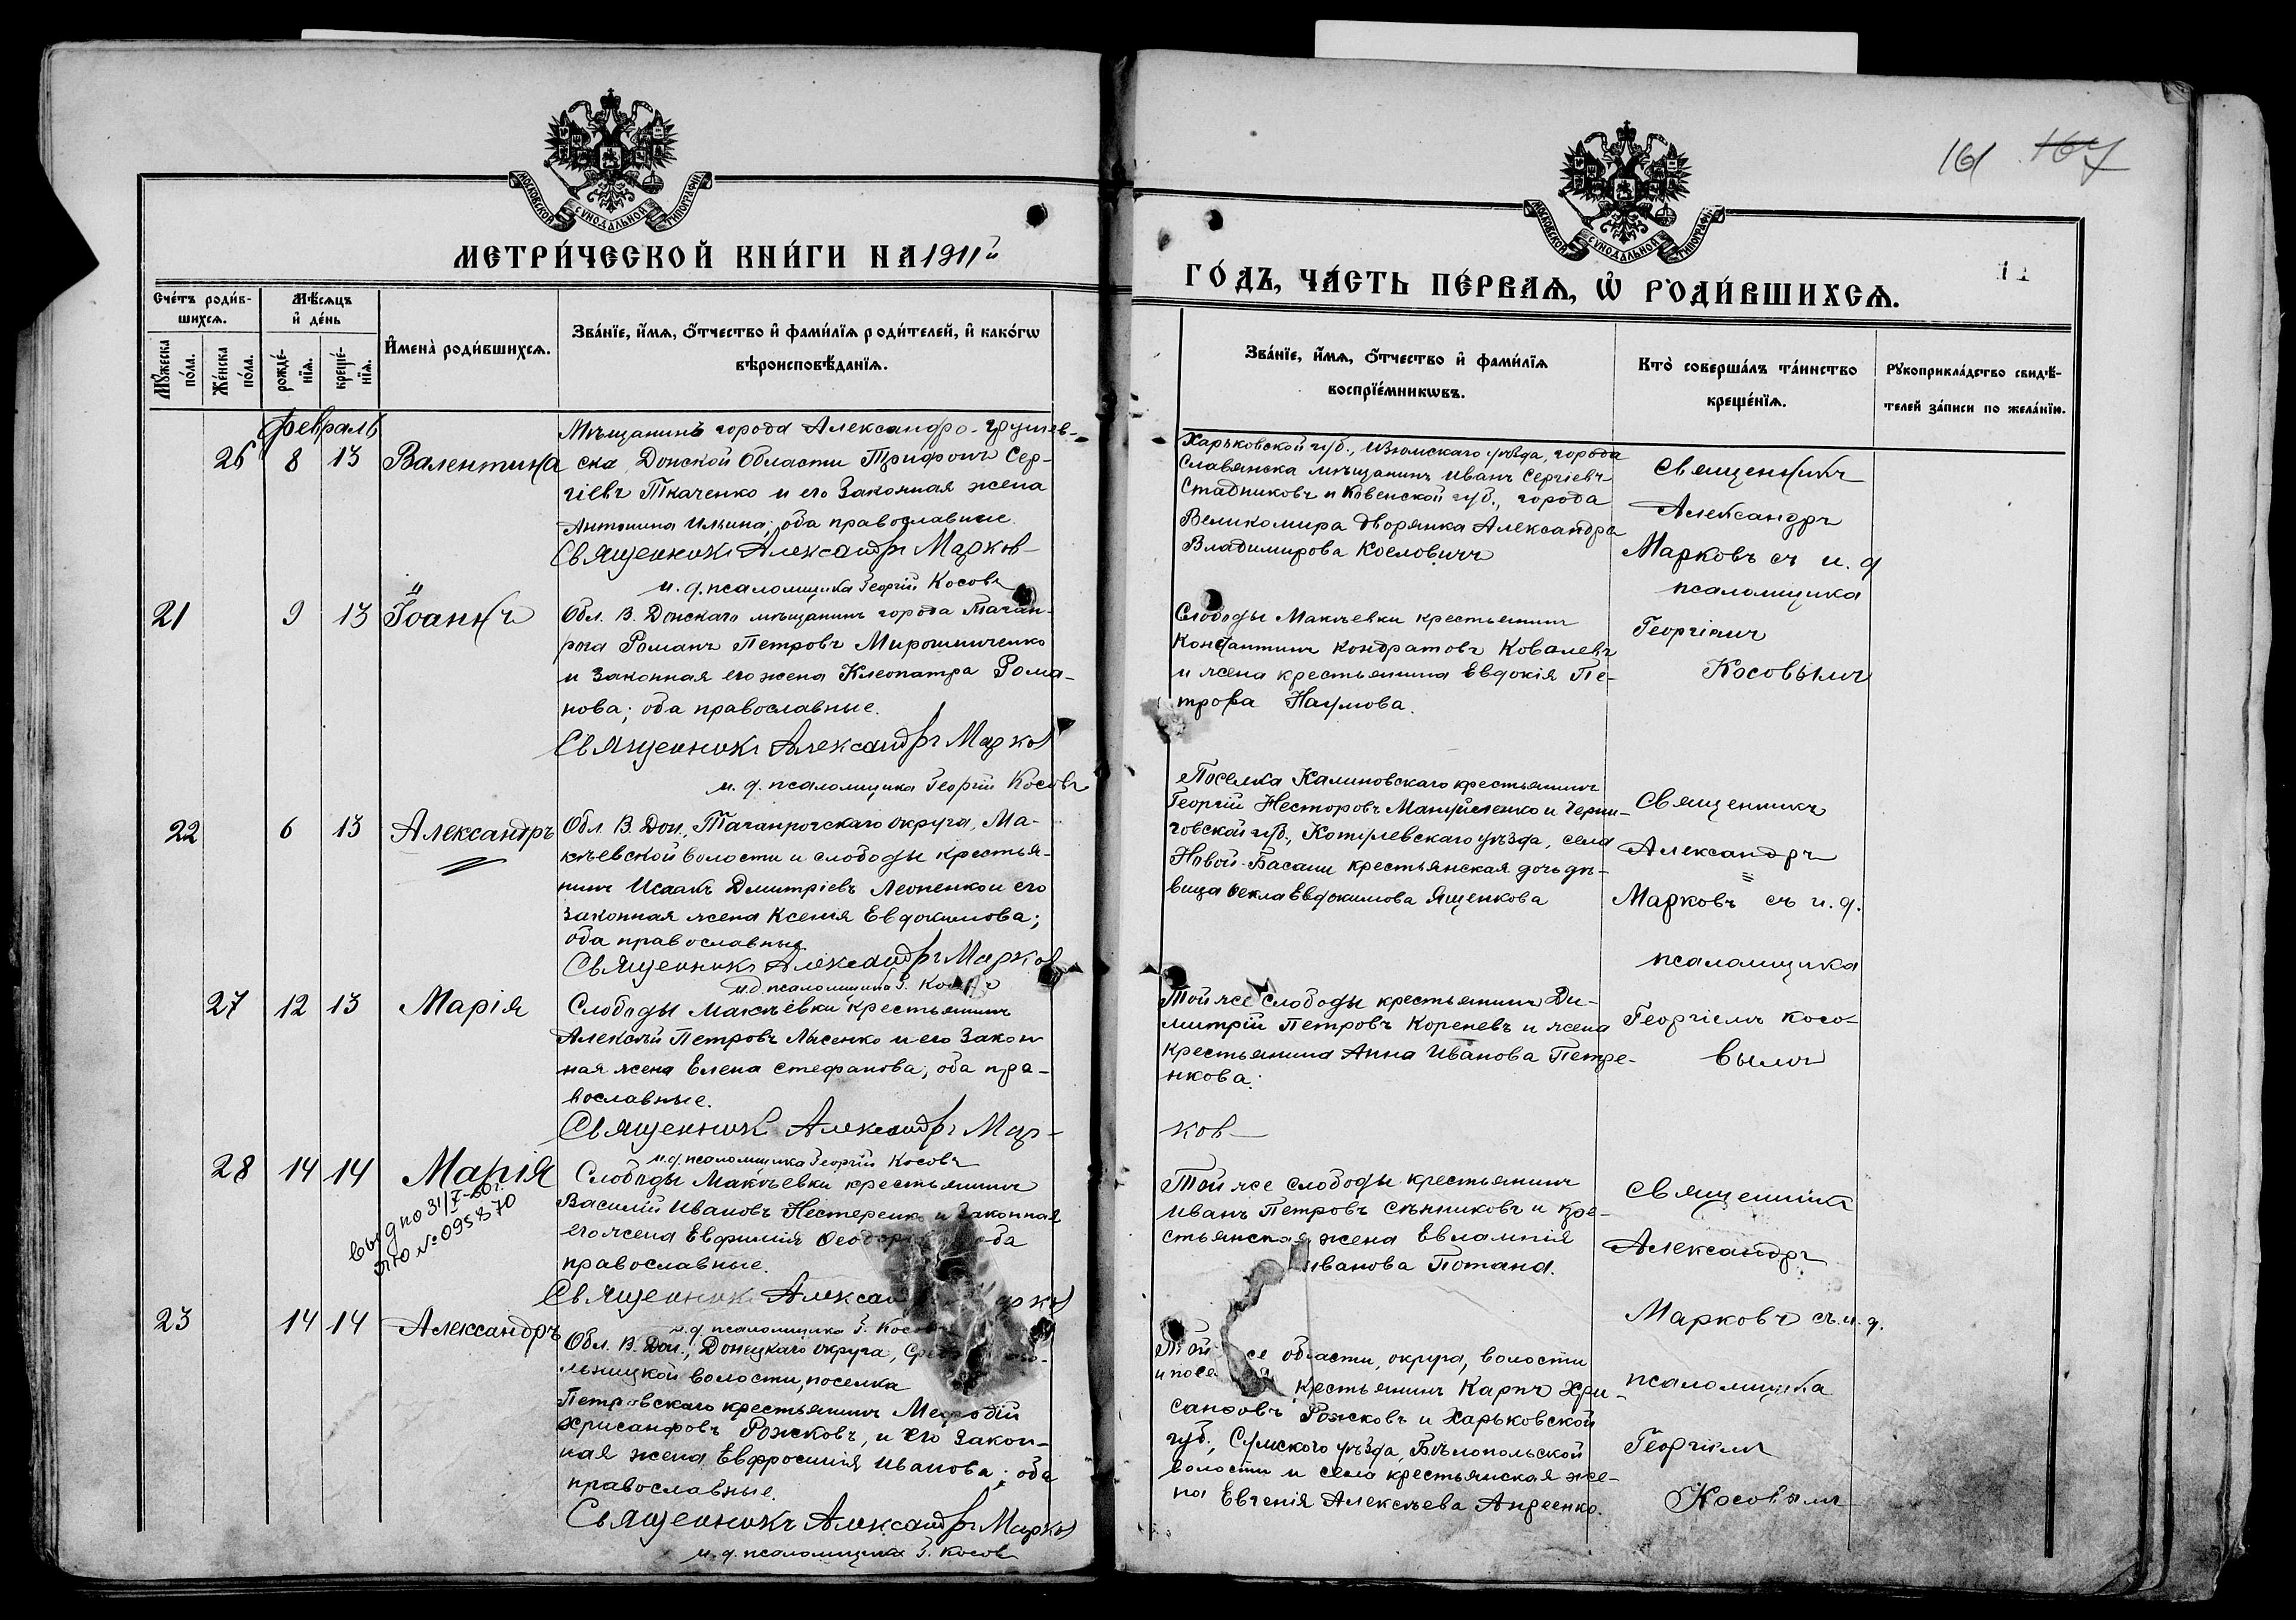 МОСКОВСКОЙ СУНОДАЛЬНОЙ ТИПОГРАФІИ
МЕТРИ́ЧЕСКОЙ КНИ́ГИ НА 1911й
Сче́тъ роди́в-
шихся.
Мѣ́сяцъ
и҆ де́нь
Мꙋ́жеска
по́ла.
Же́нска
по́ла.
рожде́-
нїѧ.
креще́-
нїѧ.
И҆мена̀ роди́вшихсѧ.
Зва́нїе, и҆́мѧ, ѻ҆́тчество и҆ фами́лїѧ роди́телей, и҆ како́гѡ
вѣроисповѣ́данїѧ.
февраль
26 8 13 Валентина
Мѣщанинъ города Александро-Грушев-
ска, Донской Области Трифонъ Сер-
гіевъ Ткаченко и его законная жена
Антонина Ильина; оба православные.
Священникъ Александръ Марков
и. д. псаломщика Георгій Косовъ
21 9 13 Іоаннъ
Обл. В. Донскаго мѣщанинъ города Таган-
рога Романъ Петровъ Мирошниченко
и законная его жена Клеопатра Рома-
нова; оба православные.
Священникъ Александръ Марков
и. д. псаломщика Георгій Косовъ
22 6 13 Александръ
Обл. В. Дон., Таганрогскаго округа, Ма-
кѣевской волости и слободы крестья-
нинъ Исаакъ Дмитріевъ Леоненко и его
законная жена Ксенія Евдокимова;
оба православные.
Священникъ Александръ Марков
и. д. псаломщика Г. Косовъ
27 12 13 Марія
Слободы Макѣевки крестьянинъ
Алексѣй Петровъ Лисенко и его закон
ная жена Елена Стефанова; оба пра-
вославные.
Священникъ Александръ Мар-
и. д. псаломщика Георгій Косовъ
28 14 14 Марія
Слободы Макѣевки крестьянинъ
Василій Ивановъ Нестеренко и законная
его жена Евфимія оба
православные.
Священникъ
и. д. псаломщика Г. Косовъ
выдано 31/I-50г.
ЯЮ №095870
23 14 14 Александръ
Обл. В. Дон., Донецкаго округа,
льницкой волости, поселка
Петровскаго крестьянинъ Мефодій
Хрисанфовъ Рожковъ, и его закон-
ная жена Евфросинія Иванова; оба
православные.
Священникъ Александръ Марков
и. д. псаломщика Г. Косов
161 167
МОСКОВСКОЙ СУНОДАЛЬНОЙ ТИПОГРАФІИ
ГО́ДЪ, ЧА́СТЬ ПЕ́РВАѦ, Ѡ҆ РОДИ́ВШИХСѦ.
Зва́нїе, и҆́мѧ, ѻ҆́тчество и҆ фами́лїѧ
воспрїе́мникѡвъ.
Кто̀ соверша́лъ та́инство
креще́нїѧ.
Рꙋкоприкла́дство свидѣ́-
телей за́писи по жела́нїю.
Харьковской губ., Изюмскаго уѣзда, города
Славянска мѣщанинъ Иванъ Сергіевъ
Стадниковъ и Ковенской губ., города
Великомира дворянка Александра
Владимирова Козловичъ
Священникъ
Александръ
Марковъ съ и. д
псаломщика
Георгіемъ
Косовымъ
Слободы Макѣевки крестьянинъ
Константинъ Кондратовъ Ковалевъ
и жена крестьянина Евдокія Пе-
трова Наумова.
Поселка Калиновскаго крестьянинъ
Георгій Несторовъ Мануйленко и Черни-
говской губ., уѣзда, села
Новой-Басани крестьянская дочь дѣ-
вица Ѳекла Евдокимова Ященкова
Священникъ
Александръ
Марковъ съ и. д.
псаломщика
Георгіемъ Косо-
вымъ
Той же слободы крестьянинъ Ди-
митрій Петровъ Кореневъ и жена
крестьянина Анна Иванова Петре-
нкова.
ков
Той же слободы крестьянинъ
Иванъ Петровъ Сѣнниковъ и кре-
стьянская жена Евлампія
Иванова Потана.
Священникъ
Александръ
Марковъ съ и. д.
псаломщика
Георгіемъ
Косовымъ
Той же области, округа, волости
и крестьянинъ Карпъ Хри-
санѳовъ Рожковъ и Харьковской
губ., Сумскаго уѣзда, Бѣлопольской
волости и села крестьянская же-
на Евгенія Алексѣева Андеенко.